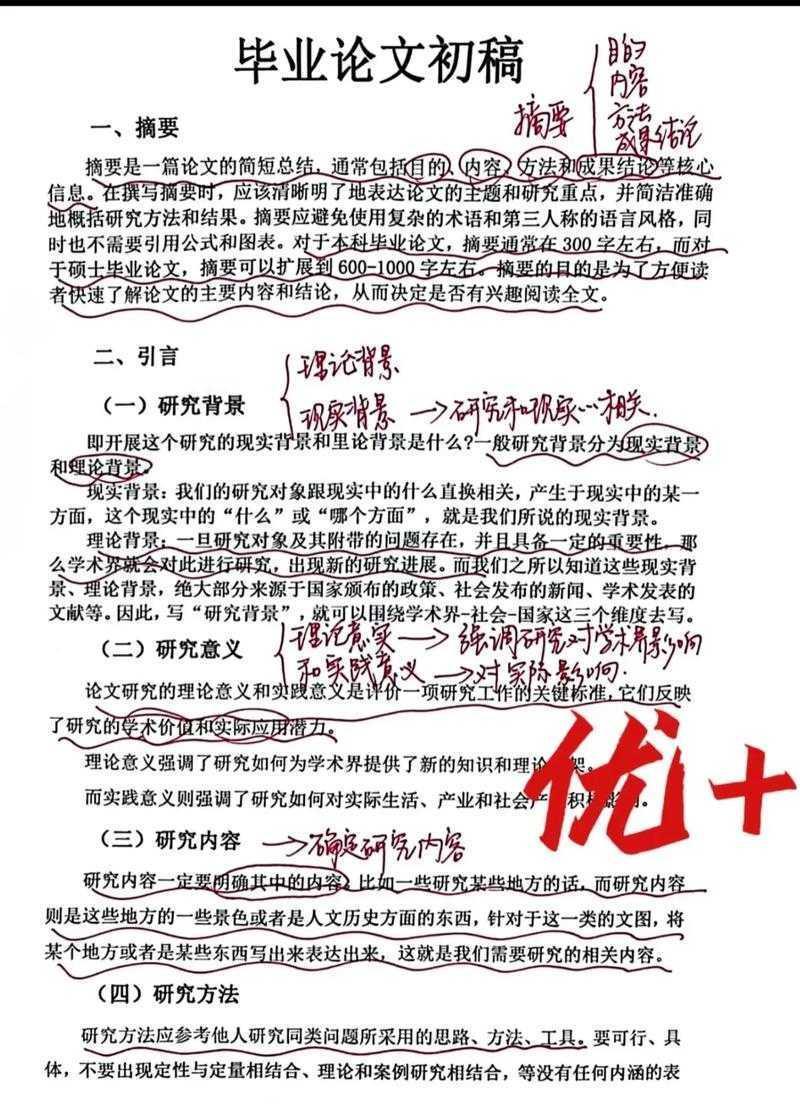 毕业论文初稿
摘要
目的
内容
方法
成果结论
一、摘要
摘要是一篇论文的简短总结，通常包括目的、内容、方法和成果结论等核心
信息。在撰写摘要时，应该清晰明了地表达论文的主题和研究重点，并简洁准确
地概括研究方法和结果。摘要应避免使用复杂的术语和第三人称的语言风格，同
时也不需要引用公式和图表。对于本科毕业论文，摘要通常在300字左右，而对
于硕士毕业论文，摘要可以扩展到600-1000字左右。摘要的目的是为了方便读
者快速了解论文的主要内容和结论，从而决定是否有兴趣阅读全文。
二、引言
理论背景
现实背景→研究和现实……相关.
（一）研究背景
即开展这个研究的现实背景和里论背景是什么?一般研究背景分为现实背景
和理论背景。
现实背景：我们的研究对象跟现实中的什么直换相关，产生于现实中的某一
方面，这个现实中的“什么”或“哪个方面”，就是我们所说的现实背景。
理论背景：一旦研究对象及其附带的问题存在，并且具备一定的重要性，那
么学术界就会对此进行研究，出现新的研究进展。而我们之所以知道这些现实背
景、理论背景，绝大部分来源于国家颁布的政策、社会发布的新闻、学术发表的
文献等。因此，写“研究背景”，就可以围绕学术界-社会-国家这三个维度去写。
（二）研究意义
理论意实→强调研究对学术界影响
和实践意义→对实际影响.
论文研究的理论意义和实践意义是评价一项研究工作的关键标准，它们反映
了研究的学术价值和实际应用潜力。
理论意义强调了研究如何为学术界提供了新的知识和理论 架。
而实践意义则强调了研究如何对实际生活、产业和社会产 积极影响。
优+
（三）研究内容 →确定研究内容
研究内容一定要明确其中的内容，比如一些研究某些地方的话，而研究内容
则是这些地方的一些景色或者是人文历史方面的东西，针对于这一类的文图，将
某个地方或者是某些东西写出来表达出来，这就是我们需要研究的相关内容。
（四）研究方法
研究方法应参考他人研究同类问题所采用的思路、方法、工具。要可行、具
体，不要出现定性与定量相结合、理论和案例研究相结合，等没有任何内涵的表